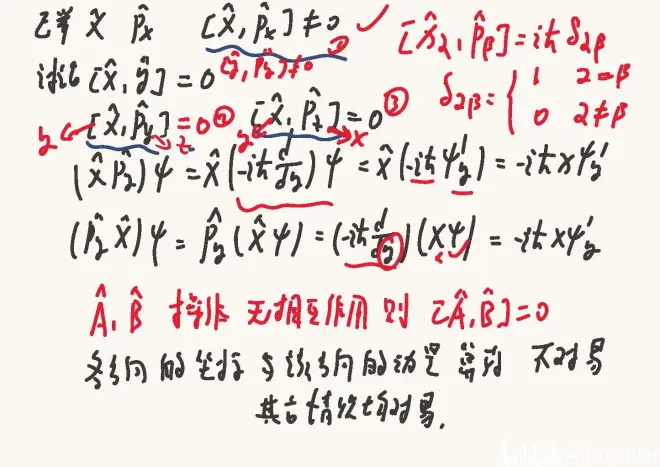 已学 x̂ p̂ₓ [x̂, p̂ₓ]≠0 ① ✓ [x̂_α, p̂_β]=iħ δ_αβ
讨论 [x̂, ŷ]=0 [ŷ, p̂_y]≠0 δ_αβ = { 1 α=β
0 α≠β
y ← [x̂, p̂_y]=0 ② → z y ← [x̂, p̂_z]=0 ③ → x
(x̂ p̂_y)ψ = x̂(-iħ d/dy)ψ = x̂(-iħ ψ'_y) = -iħxψ'_y
(p̂_y x̂)ψ = p̂_y(x̂ψ) = (-iħ d/dy)(xψ) = -iħxψ'_y
Â, B̂ 操作 无相互作用 则 [Â, B̂]=0
各方向的坐标与该方向的动量 算符 不对易
其它情况均对易.